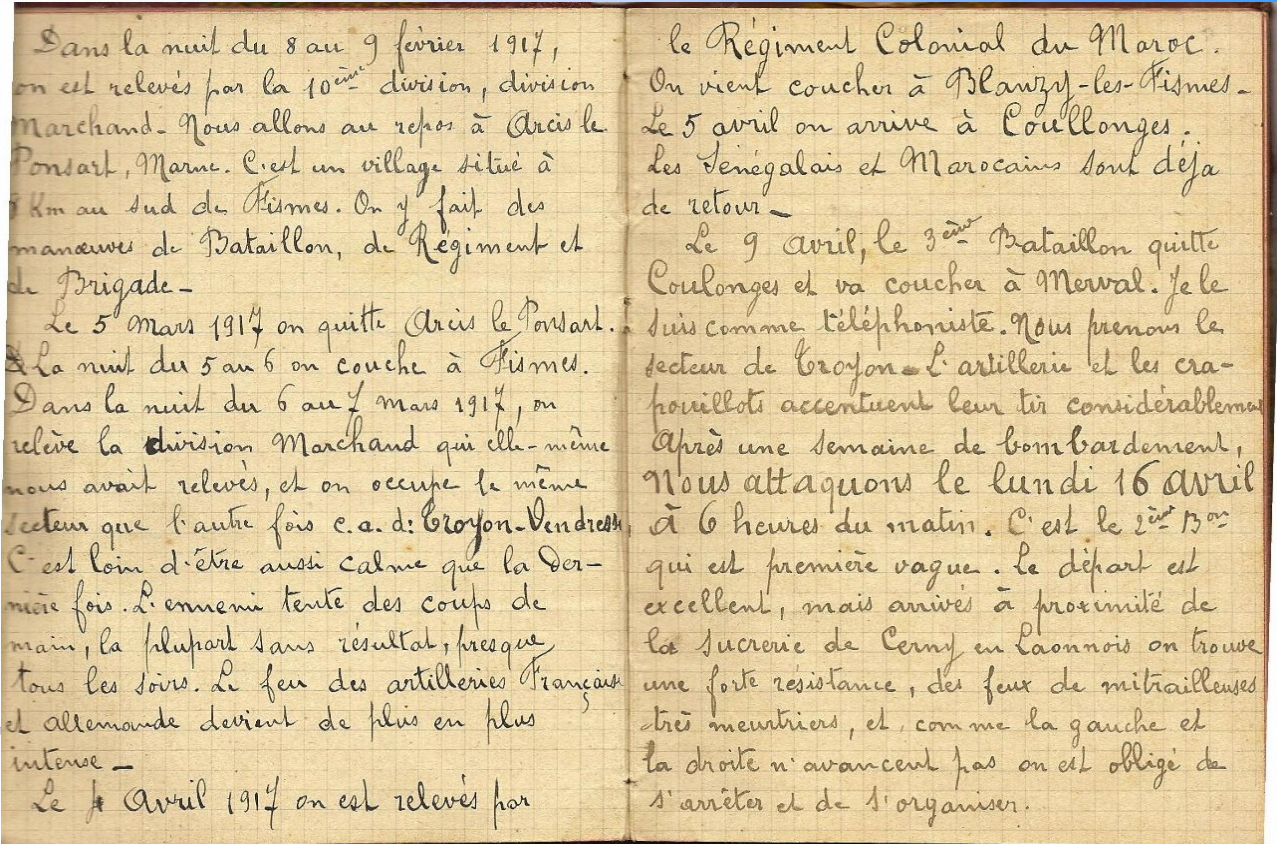 Dans la nuit du 8 au 9 février 1917,
on est relevés par la 10ème division, division
Marchand. Nous allons au repos à Arcis le
Ponsart, Marne. C'est un village situé à
Km au sud de Fismes. On y fait des
manœuvres de Bataillon, de Régiment et
de Brigade -
Le 5 Mars 1917 on quitte Arcis le Ponsart.
La nuit du 5 au 6 on couche à Fismes.
Dans la nuit du 6 au 7 mars 1917, on
relève la division Marchand qui elle-même
nous avait relevés, et on occupe le même
secteur que l'autre fois c.a.d: Troyon-Vendresse,
C'est loin d'être aussi calme que la der-
nière fois. L'ennemi tente des coups de
main, la plupart sans résultat, presque
tous les soirs. Le feu des artilleries Française
et allemande devient de plus en plus
intense -
Le 4 Avril 1917 on est relevés par
le Régiment Colonial du Maroc.
On vient coucher à Blanzy-les-Fismes -
Le 5 avril on arrive à Coullonges.
Les Sénégalais et Marocains sont déja
de retour -
Le 9 avril, le 3ème Bataillon quitte
Coulonges et va coucher à Merval. Je le
suis comme téléphoniste. Nous prenons le
secteur de Troyon - L'artillerie et les cra-
pouillots accentuent leur tir considérablement
Après une semaine de bombardement,
Nous attaquons le lundi 16 avril
à 6 heures du matin. C'est le 2ème Bon
qui est première vague. Le départ est
excellent, mais arrivés à proximité de
la sucrerie de Cerny en Laonnois on trouve
une forte résistance, des feux de mitrailleuses
très meurtriers, et, comme la gauche et
la droite n'avancent pas on est obligé de
s'arrêter et de s'organiser.